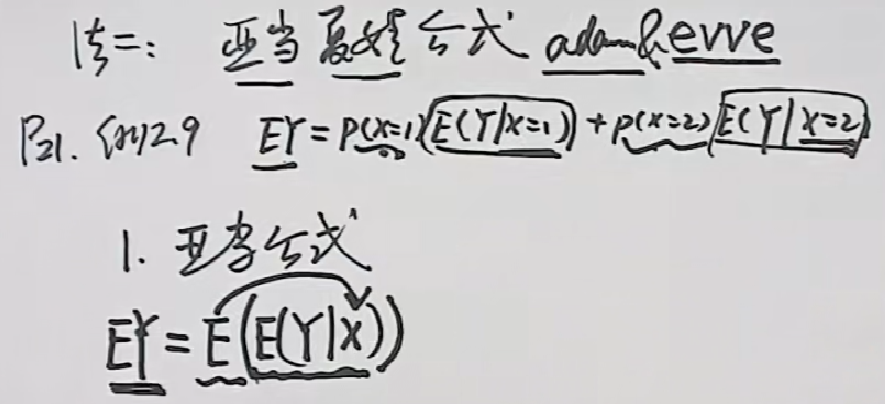 法二: 亚当夏娃公式 adam&evve
P21. 例2.9 EY=P(X=1)(E(Y|X=1))+P(X=2)(E(Y|X=2))
1. 亚当公式
EY=E(E(Y|X))